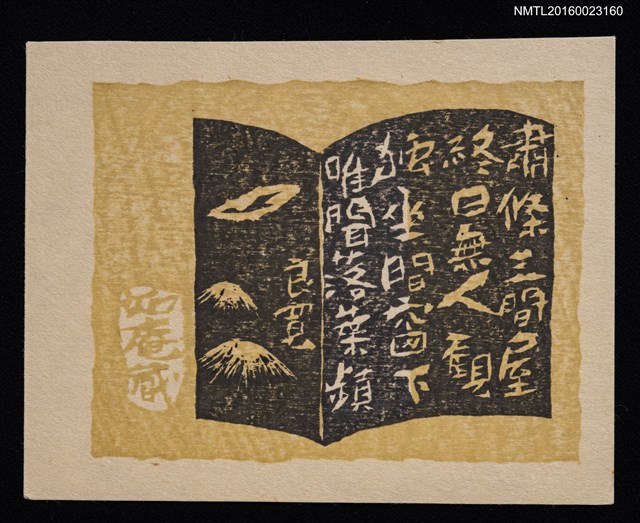 NMTL20160023160
蕭條三間屋
終日無人観
独坐間窗下
唯聞落葉頻
良寛
庵蔵